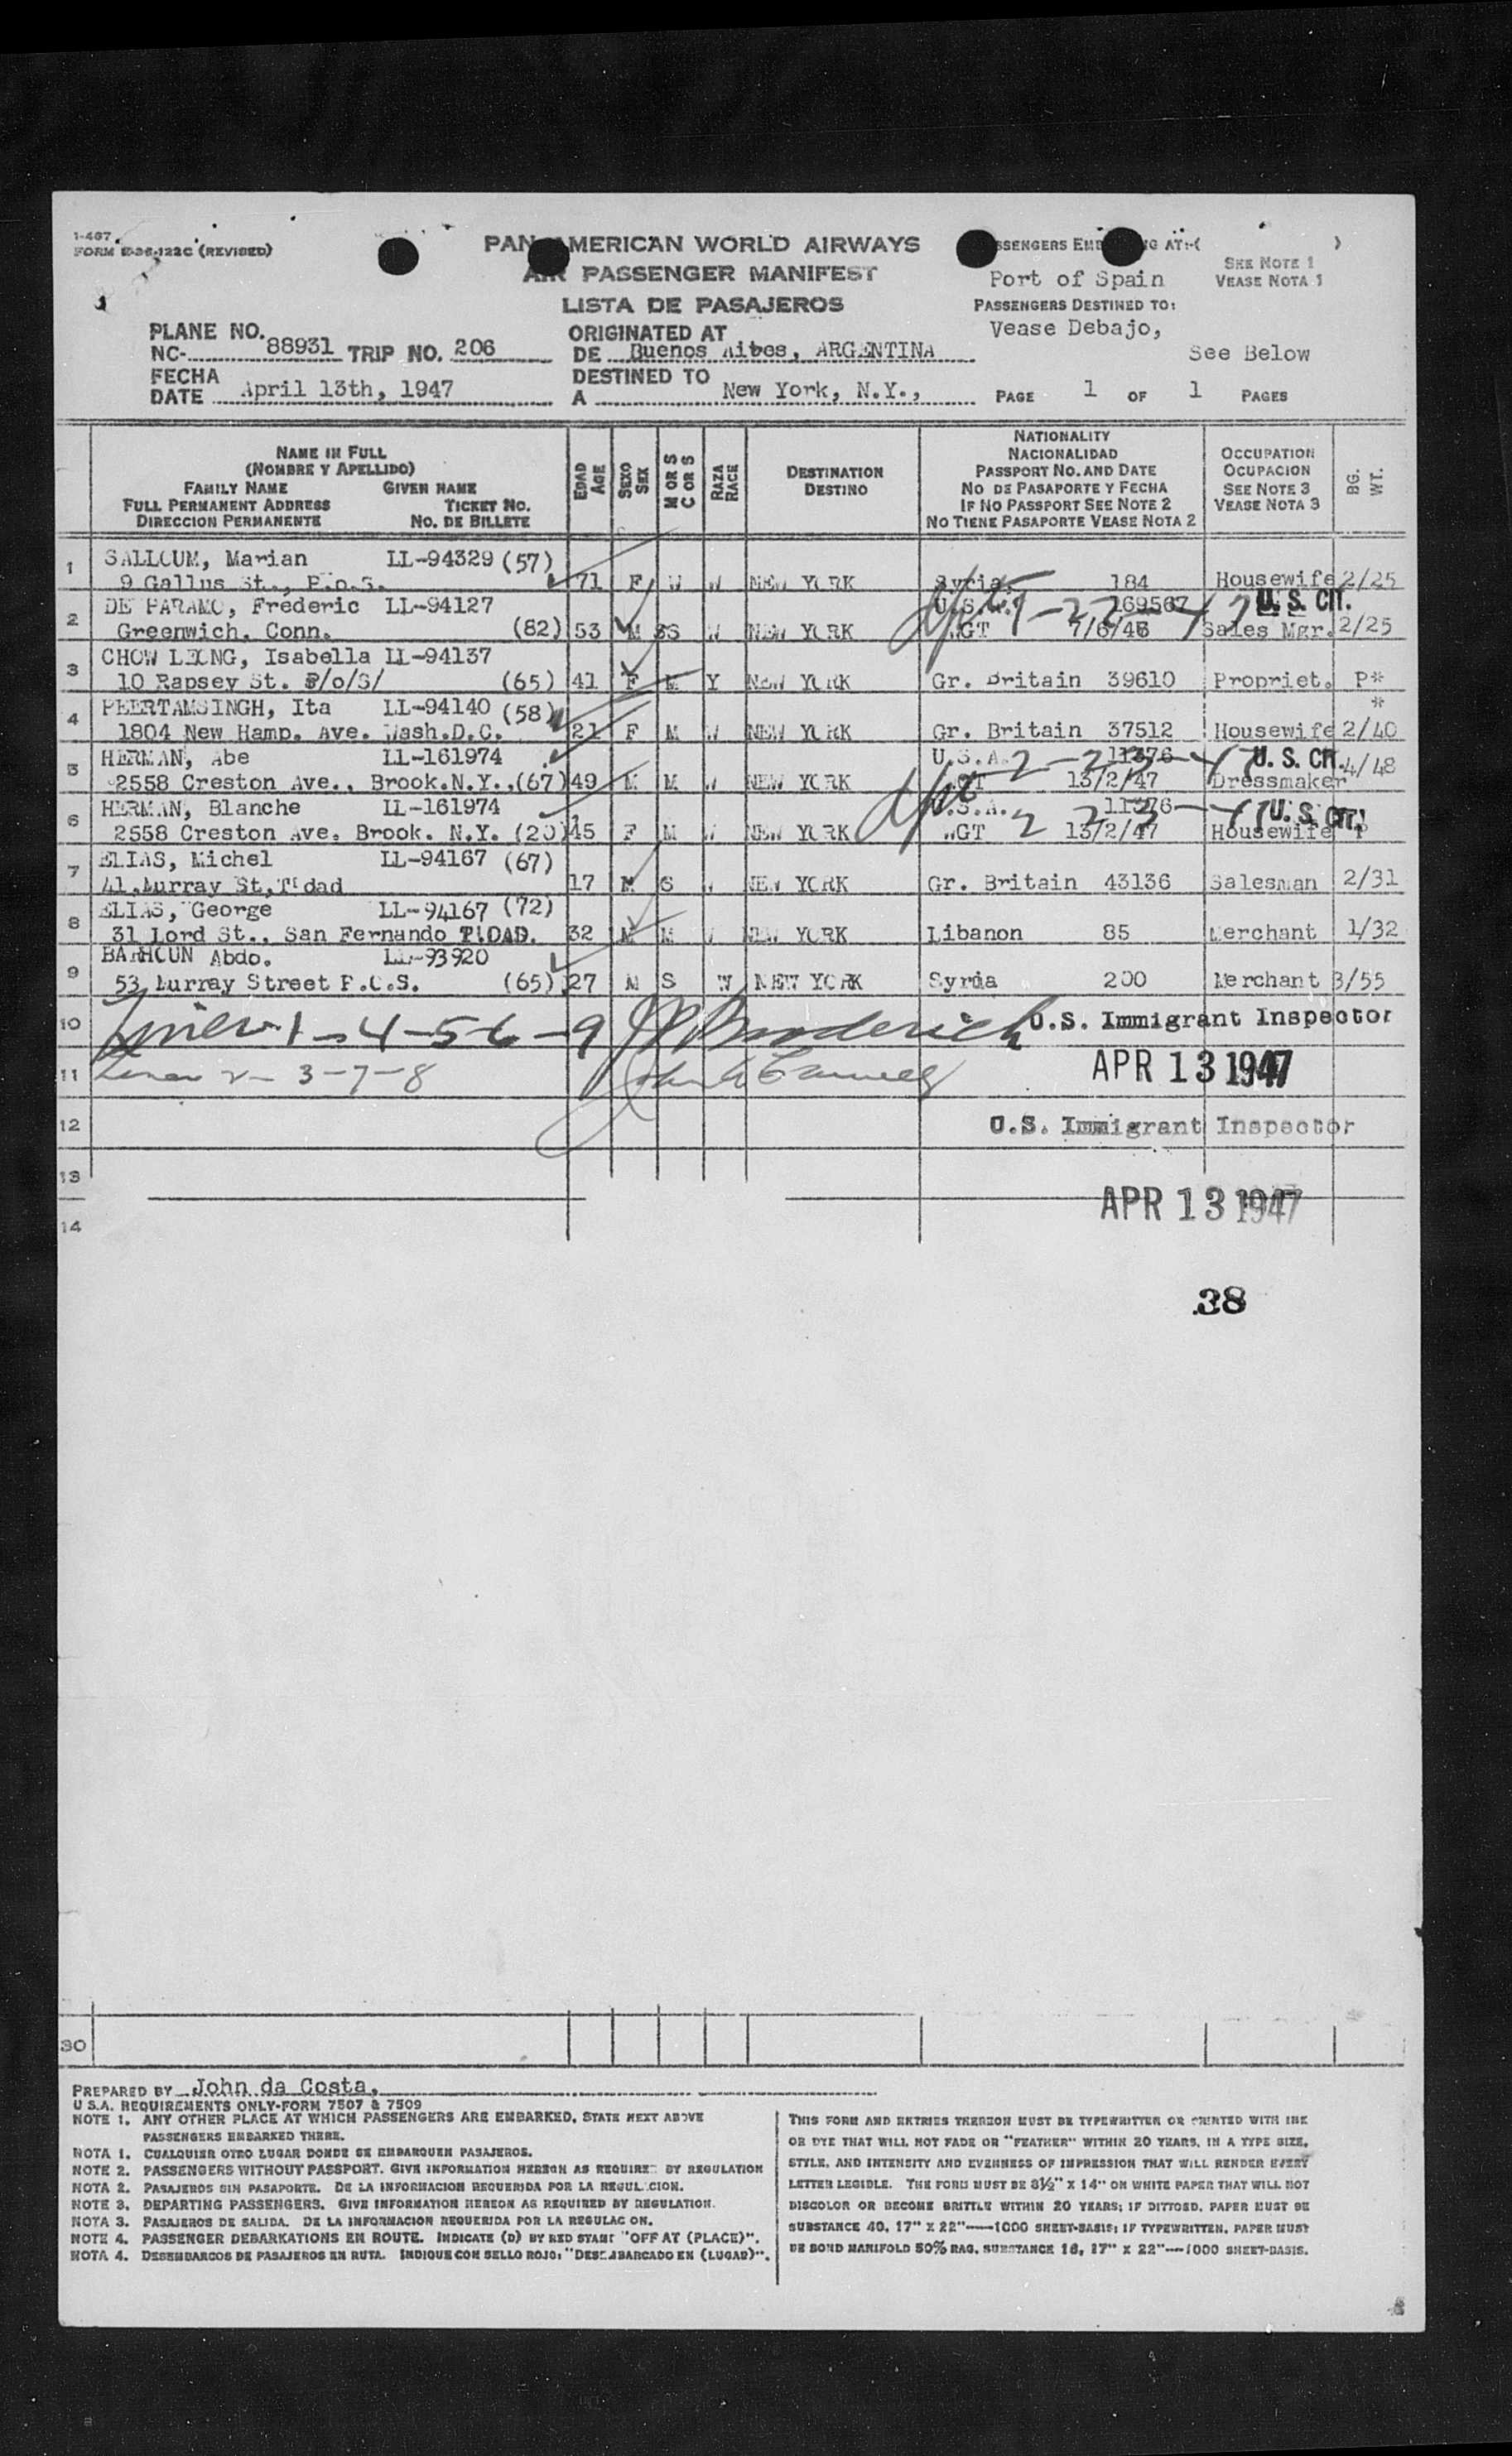 1-467
FORM E-36-122C (REVISED)
PAN AMERICAN WORLD AIRWAYS
AIR PASSENGER MANIFEST
LISTA DE PASAJEROS
SEE NOTE 1
VEASE NOTA 1
Port of Spain
PASSENGERS DESTINED TO:
Vease Debajo,
See Below
PLANE NO.
NC- 88931 TRIP NO. 206
ORIGINATED AT
DE Buenos Aibes, ARGENTINA
FECHA
DATE April 13th, 1947
DESTINED TO
A New York, N.Y.,
PAGE 1 OF 1 PAGES
NAME IN FULL
(NOMBRE Y APELLIDO)
FAMILY NAME GIVEN NAME
FULL PERMANENT ADDRESS TICKET NO.
DIRECCION PERMANENTE NO. DE BILLETE
EDAD
AGE
SEXO
SEX
M OR S
C OR S
RAZA
RACE
DESTINATION
DESTINO
NATIONALITY
NACIONALIDAD
PASSPORT NO. AND DATE
NO DE PASAPORTE Y FECHA
IF NO PASSPORT SEE NOTE 2
NO TIENE PASAPORTE VEASE NOTA 2
OCCUPATION
OCUPACION
SEE NOTE 3
VEASE NOTA 3
BG.
WT.
1 SALLOUM, Marian LL-94329 (57)
9 Gallus St., P.o.S. 71 F W W NEW YORK Syria, 184 Housewife 2/25
2 DE PARAMO, Frederic LL-94127 U.S.A. 169567 U. S. CIT.
Greenwich. Conn. (82) 53 M S W NEW YORK WGT 7/6/46 Sales Mgr. 2/25
3 CHOW LEONG, Isabella LL-94137
10 Rapsey St. P/o/S/ (65) 41 F M Y NEW YORK Gr. Britain 39610 Propriet. P*
4 PEERTAMSINGH, Ita LL-94140 (58) *
1804 New Hamp. Ave. Wash.D.C. 21 F M W NEW YORK Gr. Britain 37512 Housewife 2/40
5 HERMAN, Abe LL-161974 U.S.A. 11376 U. S. CIT.
2558 Creston Ave., Brook.N.Y.,(67) 49 M M W NEW YORK WGT 13/2/47 Dressmaker 4/48
6 HERMAN, Blanche LL-161974 U.S.A. 11376 U. S. CIT.
2558 Creston Ave. Brook. N.Y. (20) 45 F M W NEW YORK WGT 13/2/47 Housewife P
7 ELIAS, Michel LL-94167 (67)
41,Murray St,T'dad 17 M S W NEW YORK Gr. Britain 43136 Salesman 2/31
8 ELIAS, George LL-94167 (72)
31 Lord St., San Fernando T'DAD. 32 M M W NEW YORK Libanon 85 Merchant 1/32
9 BARHOUN Abdo. LL-93920
53 Murray Street P.O.S. (65) 27 M S W NEW YORK Syria 200 Merchant 3/55
10 Lines 1-4-5-6-9 Broderick U.S. Immigrant Inspector
11 Lines 2-3-7-8 APR 13 1947
12 U.S. Immigrant Inspector
13 APR 13 1947
14
38
30
PREPARED BY John da Costa,
U S.A. REQUIREMENTS ONLY-FORM 7507 & 7509
NOTE 1. ANY OTHER PLACE AT WHICH PASSENGERS ARE EMBARKED, STATE NEXT ABOVE
PASSENGERS EMBARKED THERE.
NOTA 1. CUALQUIER OTRO LUGAR DONDE SE EMBARQUEN PASAJEROS.
NOTE 2. PASSENGERS WITHOUT PASSPORT. GIVE INFORMATION HEREON AS REQUIRED BY REGULATION
NOTA 2. PASAJEROS SIN PASAPORTE. DE LA INFORMACION REQUERIDA POR LA REGULACION.
NOTE 3. DEPARTING PASSENGERS. GIVE INFORMATION HEREON AS REQUIRED BY REGULATION.
NOTA 3. PASAJEROS DE SALIDA. DE LA INFORMACION REQUERIDA POR LA REGULACION.
NOTE 4. PASSENGER DEBARKATIONS EN ROUTE. INDICATE (D) BY RED STAMP "OFF AT (PLACE)".
NOTA 4. DESEMBARCOS DE PASAJEROS EN RUTA. INDIQUE CON SELLO ROJO: "DESEMBARCADO EN (LUGAR)".
THIS FORM AND ENTRIES THEREON MUST BE TYPEWRITTEN OR PRINTED WITH INK
OR DYE THAT WILL NOT FADE OR "FEATHER" WITHIN 20 YEARS, IN A TYPE SIZE,
STYLE, AND INTENSITY AND EVENNESS OF IMPRESSION THAT WILL RENDER EVERY
LETTER LEGIBLE. THE FORM MUST BE 8½" X 14" ON WHITE PAPER THAT WILL NOT
DISCOLOR OR BECOME BRITTLE WITHIN 20 YEARS; IF DITTOED, PAPER MUST BE
SUBSTANCE 40, 17" X 22"—1000 SHEET-BASIS; IF TYPEWRITTEN, PAPER MUST
BE BOND MANIFOLD 50% RAG, SUBSTANCE 16, 17" X 22"—1000 SHEET-BASIS.